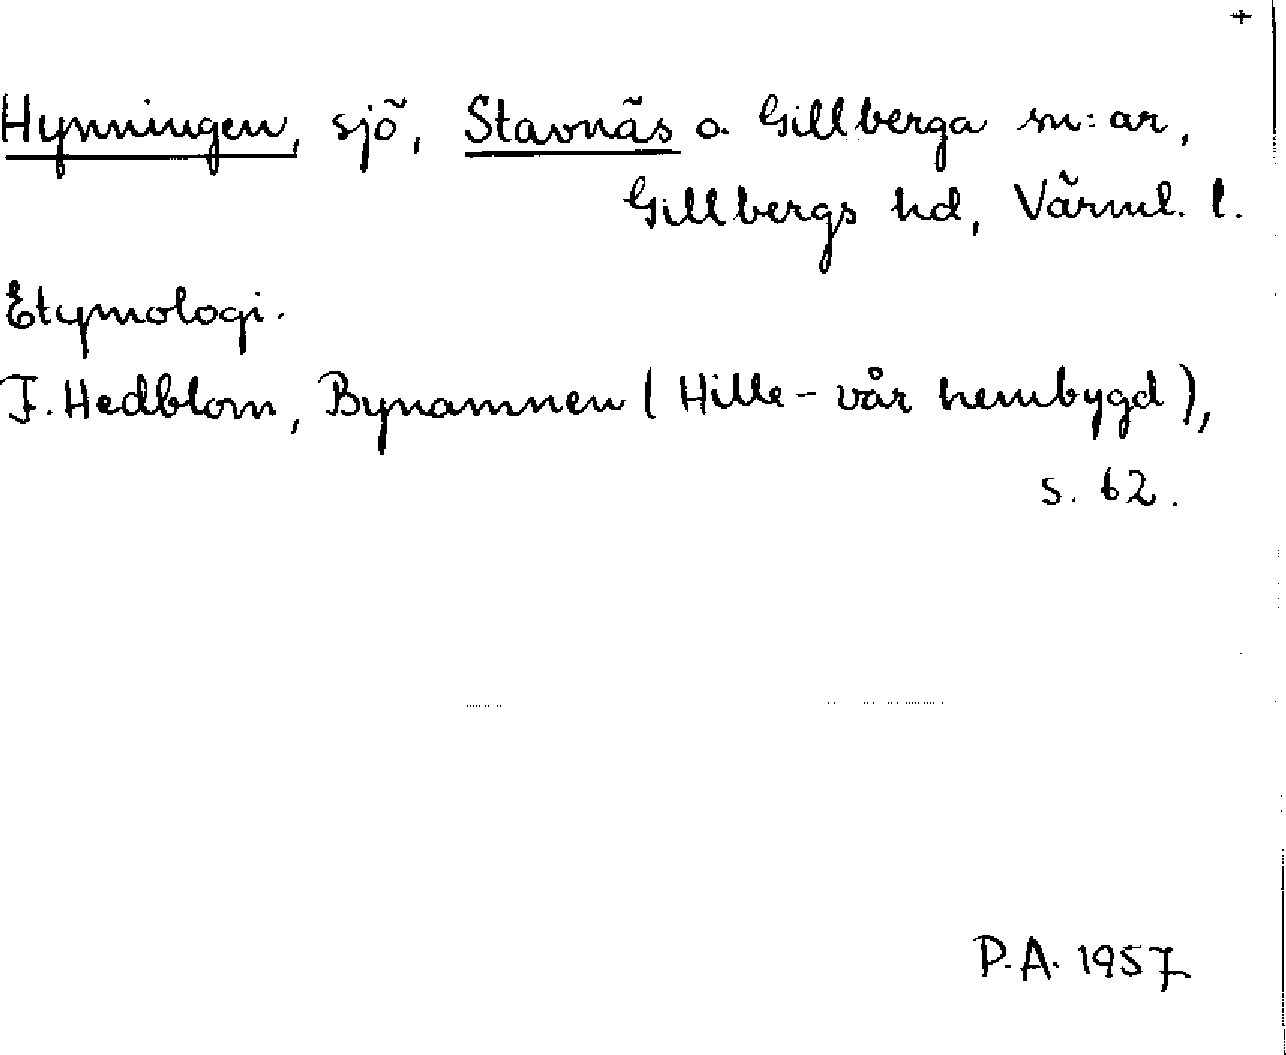 +
Hynningen, sjö, Stavnäs o. Gillberga sn:ar,
Gillbergs hd, Värml. l.
Etymologi.
F. Hedblom, Bynamnen (Hille - vår hembygd),
s. 62.
P.A. 1957